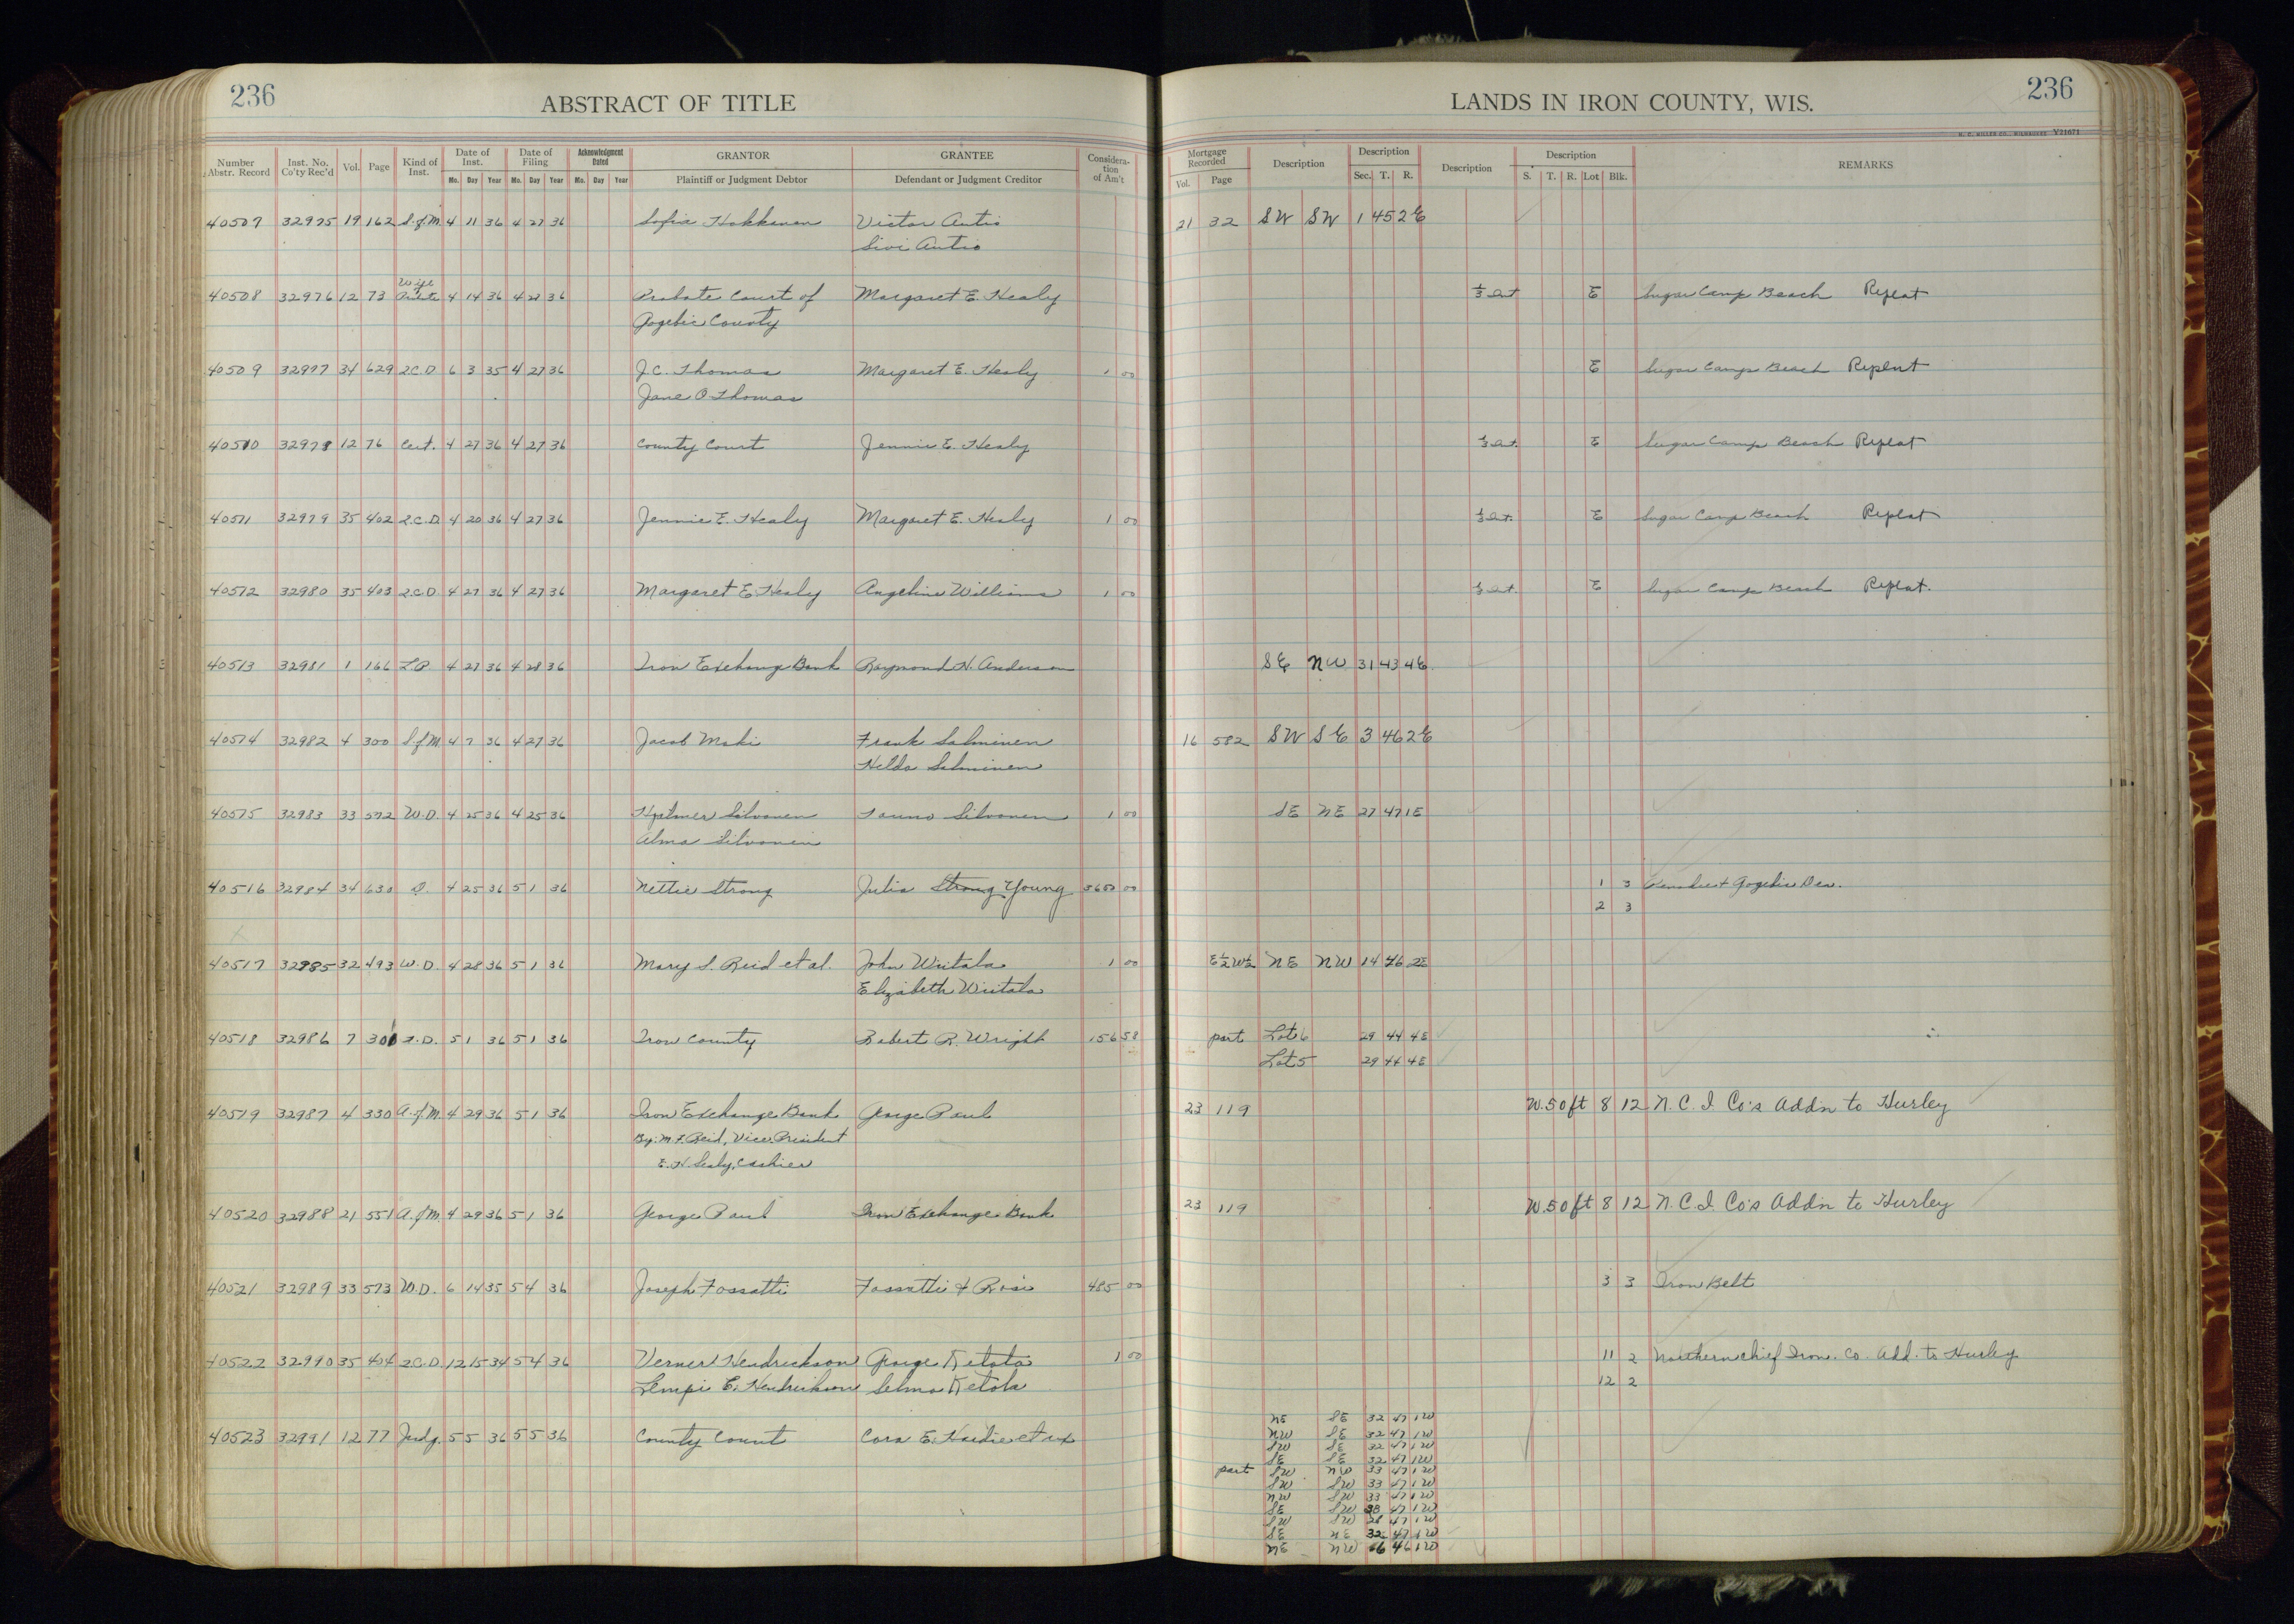 236
ABSTRACT OF TITLE
Number Abstr. Record Inst. No. Co'ty Rec'd Vol. Page Kind of Inst. Date of Inst. Mo. Day Year Date of Filing Mo. Day Year Acknowledgment Dated Mo. Day Year GRANTOR Plaintiff or Judgment Debtor GRANTEE Defendant or Judgment Creditor Consideration of Am't
40507 32975 19 162 S.of M. 4 11 36 4 27 36 Sofia Hokkanen Victor Autio
Sivi Autio
40508 32976 12 73 4 14 36 4 27 36 Probate Court of Margaret E. Healy
Gogebic County
40509 32977 34 629 2.C.D 6 3 35 4 27 36 J.C. Thomas Margaret E. Healy 1 00
Jane O Thomas
40510 32978 12 76 Cert. 4 27 36 4 27 36 County Court Jennie E. Healy
40511 32979 35 402 2.C.D. 4 20 36 4 27 36 Jennie E. Healy Margaret E. Healy 1 00
40512 32980 35 403 2.C.D 4 27 36 4 27 36 Margaret E. Healy Angeline Williams 1 00
40513 32981 1 166 L.P. 4 27 36 4 28 36 Iron Exchange Bank Raymond N. Anderson
40514 32982 4 300 S.of M. 4 7 36 4 27 36 Jacob Maki Frank Salminen
Hilda Salminen
40515 32983 33 572 W.D. 4 25 36 4 25 36 Hjalmer Silvonen Tauno Silvonen 1 00
Alma Silvonen
40516 32984 34 630 D. 4 25 36 5 1 36 Nettie Strong Julia Strong Young 3600 00
40517 32985 32 493 W.D. 4 28 36 5 1 36 Mary S. Reid et al. John Wiitala 1 00
Elizabeth Wiitala
40518 32986 7 301 T.D. 5 1 36 5 1 36 Iron County Robert R. Wright 156 58
40519 32987 4 330 A.of M. 4 29 36 5 1 36 Iron Exchange Bank George Paul
By: M.F. Reid, Vice President
E.H. Sealy, Cashier
40520 32988 21 551 A.of M. 4 29 36 5 1 36 George Paul Iron Exchange Bank
40521 32989 33 573 W.D. 6 14 35 5 4 36 Joseph Fossatti Fossatti & Rosi 485 00
40522 32990 35 404 2.C.D. 12 15 34 5 4 36 Verner Hendrickson George Ketola 1 00
Lempi E. Hendrickson Selma Ketola
40523 32991 12 77 Judg. 5 5 36 5 5 36 County Court Cora E. Hardie et
LANDS IN IRON COUNTY, WIS.
236
H. C. MILLER CO., MILWAUKEE V21671
Mortgage Recorded Vol. Page Description Description Sec. T. R. Description Description S. T. R. Lot Blk. REMARKS
21 32 SW SW 1 45 2E
1/3 Int E Sugar Camp Beach Replat
E Sugar Camp Beach Replat
1/3 Int. E Sugar Camp Beach Replat
1/3 Int. E Sugar Camp Beach Replat
1/3 Int. E Sugar Camp Beach Replat.
SE NW 31 43 4E
16 582 SW SE 3 46 2E
SE NE 27 47 1E
1 3 Penokee & Gogebic Dev.
2 3
E½W½ NE NW 14 46 2E
part Lot 6 29 44 4E
Lot 5 29 44 4E
23 119 W.50ft 8 12 N.C.I. Co's Addn to Hurley
23 119 W.50ft 8 12 N.C.I. Co's Addn to Hurley
3 3 Iron Belt
11 2 Northern Chief Iron. Co. Add. to Hurley
12 2
NE SE 32 47 1W
NW SE 32 47 1W
SW SE 32 47 1W
SE SE 32 47 1W
part SW NW 33 47 1W
SW SW 33 47 1W
NW SW 33 47 1W
SE SW 47 1W
SW SW 28 47 1W
SE NE 32 47 1W
NE NW 6 46 1W